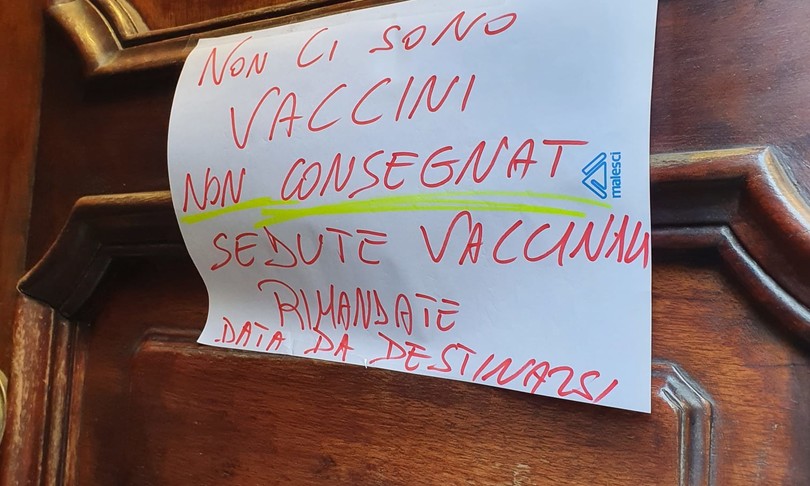 NON CI SONO
VACCINI
NON CONSEGNAT
malesci
SEDUTE VACCINALI
RIMANDATE
DATA DA DESTINARSI